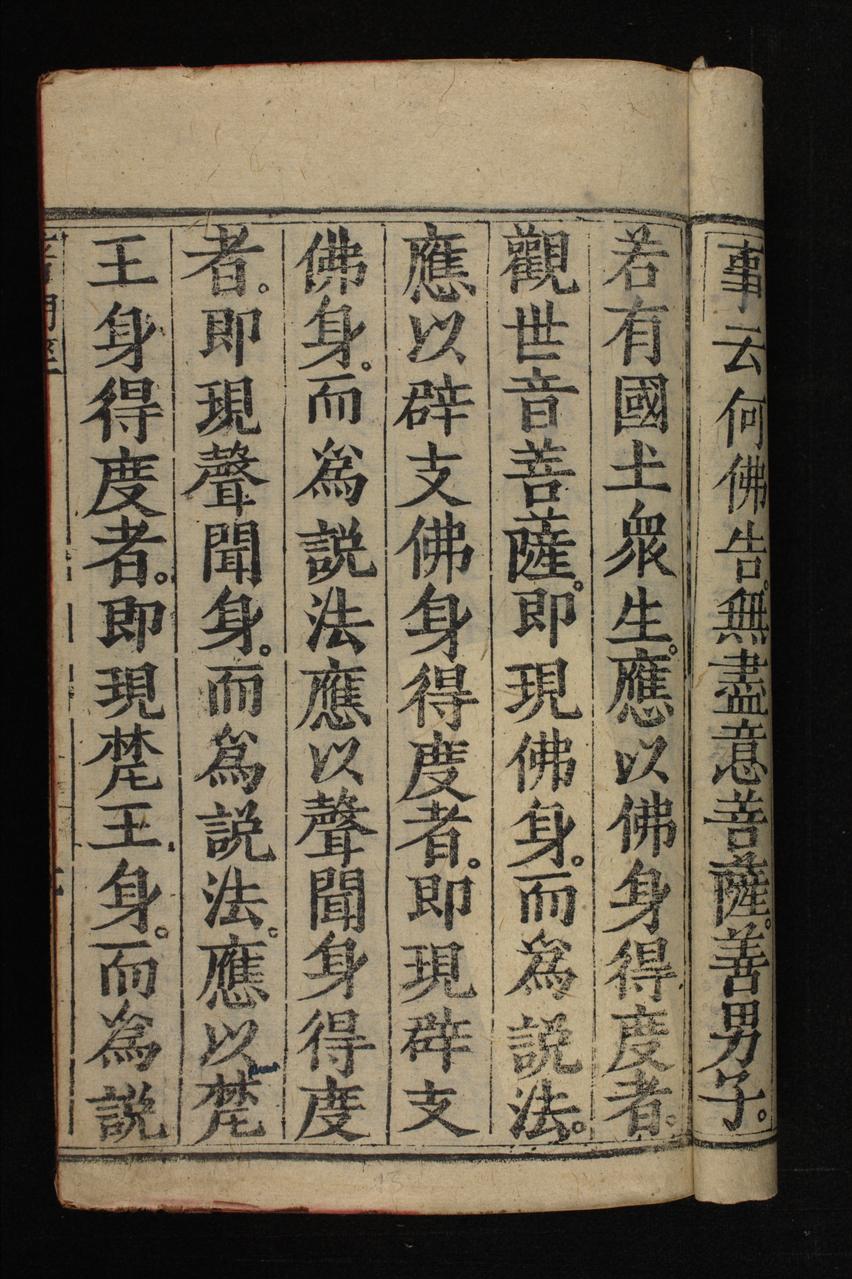 事云何佛告。無盡意菩薩。善男子。
若有國土衆生。應以佛身得度者。
觀世音菩薩。即現佛身。而爲説法。
應以辟支佛身得度者。即現辟支
佛身。而爲説法應以聲聞身得度
者。即現聲聞身。而爲説法。應以梵
王身得度者。即現梵王身。而爲説
門經
13